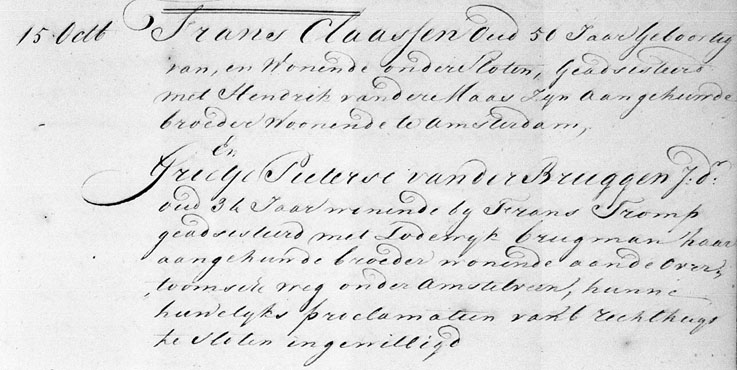 15 Octb Frans Claassen Oud 50 Jaar Geboortig
van, en Wonende onder Sloten, geadsisteerd
met Hendrik vander Maas Zijn aangehuwde
broeder Woonende te Amsterdam,
En
Grietje Pieterse vander Bruggen J:d:
oud 34 Jaar wonende by Frans Tromp
geadsisteerd met Lodewyk brugman haar
aangehuwde broeder wonende aande Over,
toomsche weg onder Amstelveen, hunne
huwelyks proclamatien van 't rechthuys
te Sloten ingewilligd